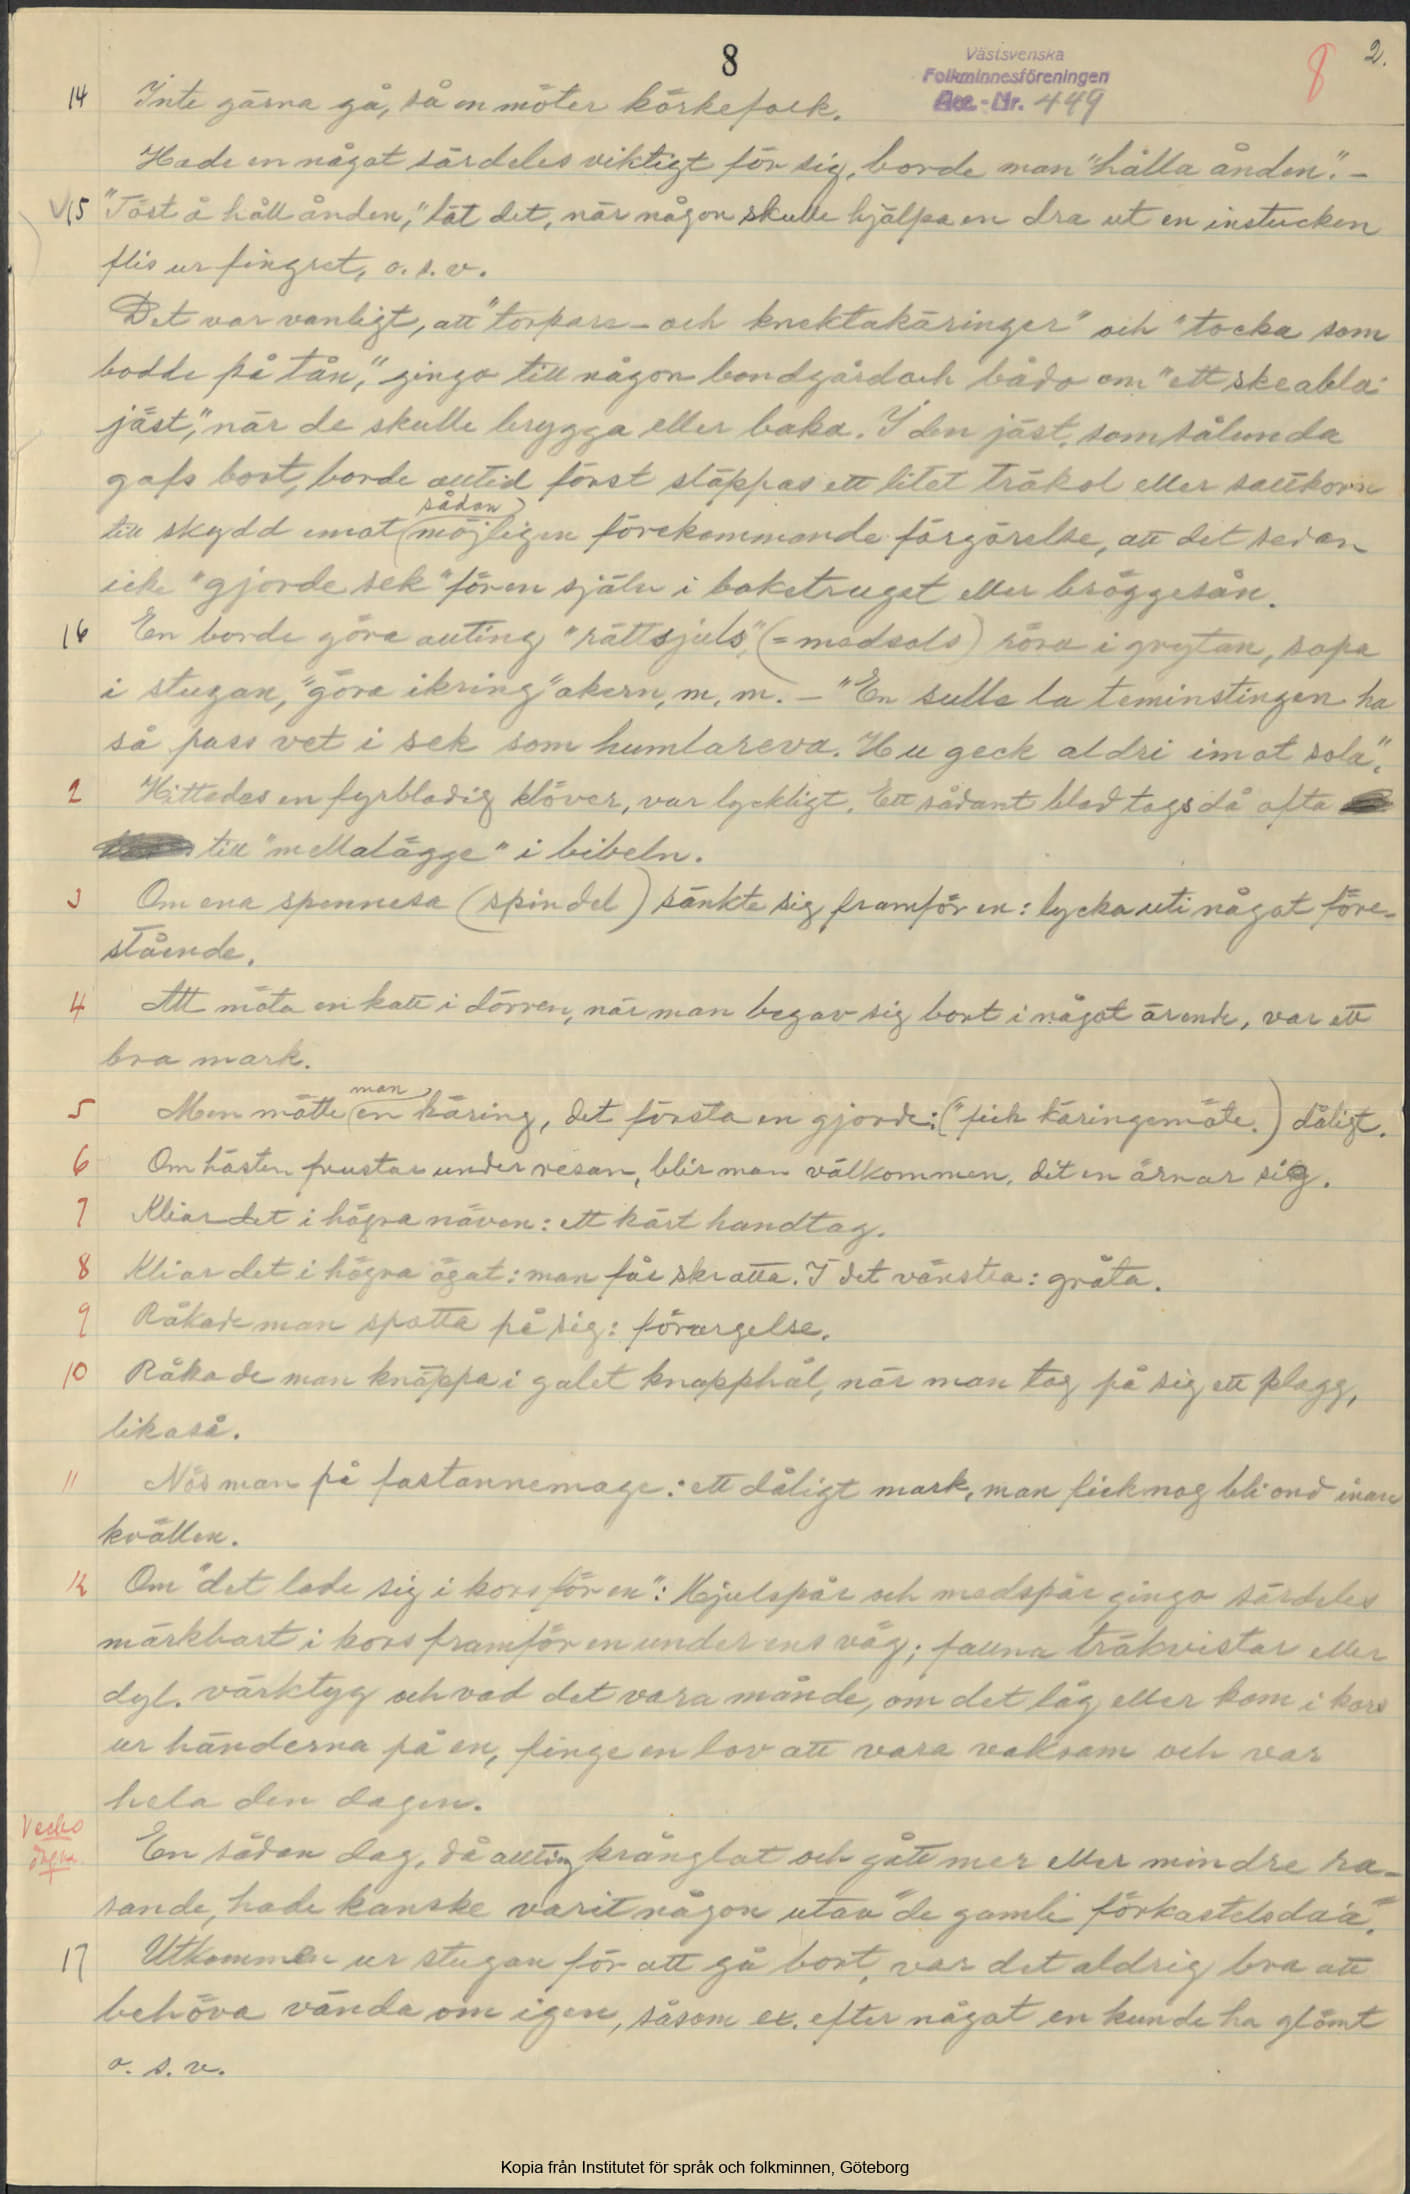 8
2.
8
Västsvenska
Folkminnesföreningen
Acc.-Nr. 449
14 Inte gärna gå, så en möter körkefolk.
Hade en något särdeles viktigt för sig, borde man "hålla ånden". –
15 "Töst å håll ånden," lät det, när någon skulle hjälpa en dra ut en instucken
flis ur fingret, o. s. v.
Det var vanligt, att "torpare- och knektakäringer" och "tocka som
bodde på tån," gingo till någon bondgård och bådo om "ett skeabla
jäst," när de skulle brygga eller baka. I den jäst, som sålunda
gafs bort, borde alltid först släppas ett litet träkol eller saltkorn
till skydd emot sådan möjligen förekommande förgörelse, att det sedan
icke "gjorde sek" för en själv i baketruget eller bröggesån.
16 En borde göra allting "rättsjuls," (= medsols) röra i grytan, sopa
i stugan, "göra ikring" akern, m. m. – "En sulle la teminstingen ha
så pass vet i sek som humlareva. Hu geck aldri imot sola".
2 Hittades en fyrbladig klöver, var lyckligt. Ett sådant blad togs då ofta
till "mellalägge" i bibeln.
3 Om ena spennesa (spindel) sänkte sig framför en: lycka uti något före-
stående.
4 Att möta en katt i dörren, när man begav sig bort i något ärende, var ett
bra mark.
5 Men mötte man en käring, det första en gjorde: ("fick käringemöte.) dåligt.
6 Om hästen frustar under resan, blir man välkommen, dit en ärnar sig.
7 Kliar det i högra näven: ett kärt handtag.
8 Kliar det i högra ögat: man får skratta. I det vänstra: gråta.
9 Råkade man spotta på sig: förargelse.
10 Råkade man knäppa i galet knapphål, när man tog på sig ett plagg,
likaså.
11 Nös man på fastannemage: ett dåligt mark, man fick nog bli ond innan
kvällen.
12 Om "det lade sig i kors för en": Hjulspår och medspår gingo särdeles
märkbart i kors framför en under ens väg; fallna träkvistar eller
dyl. värktyg och vad det vara månde, om det låg eller kom i kors
ur händerna på en, finge en lov att vara vaksam och var
hela den dagen.
En sådan dag, då allting krånglat och gått mer eller mindre ra-
sande, hade kanske varit någon utav "de gamli förkastelsdaa".
17 Utkommen ur stugan för att gå bort, var det aldrig bra att
behöva vända om igen, såsom ex. efter något en kunde ha glömt
o. s. v.
Kopia från Institutet för språk och folkminnen, Göteborg